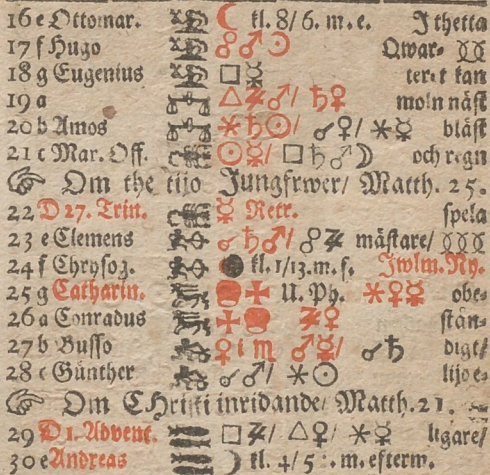 16 e Ottomar. ☾ kl. 8/6. m. e. J thetta
17 f Hugo ☍♂☉ Qwar-
18 g Eugenius □☿ ter-t kan
19 a △♃♂/ ♄♀ moln näst
20 b Amos ⚹♄☉/ ☌♀/ ⚹☿ bläst
21 c Mar. Off. ☉☿/ □♄♂☽ och regn
☞ Om the tijo Jungfrwer/ Matth. 25.
22 D 27. Trin. ☿ Retr. spela
23 e Clemens ☌♄♂/ ☍♃ mästare/
24 f Chrysog. ● kl. 1/13. m. f. Jwlm. Ny.
25 g Catharin. U. Py. ⚹♀☿ obe-
26 a Conradus ♃♀ stän-
27 b Busso ♀ i ♏ ♂☿/ ☌♄ digt/
28 c Günther ☌♂/ ⚹☉ lijoe-
☞ Om CHristi inridande/ Matth. 21.
29 D 1. Advent. □♃/ △♀/ ⚹☿ ligare/
30 e Andreas ☽ kl. 4/5 . m. efterm.